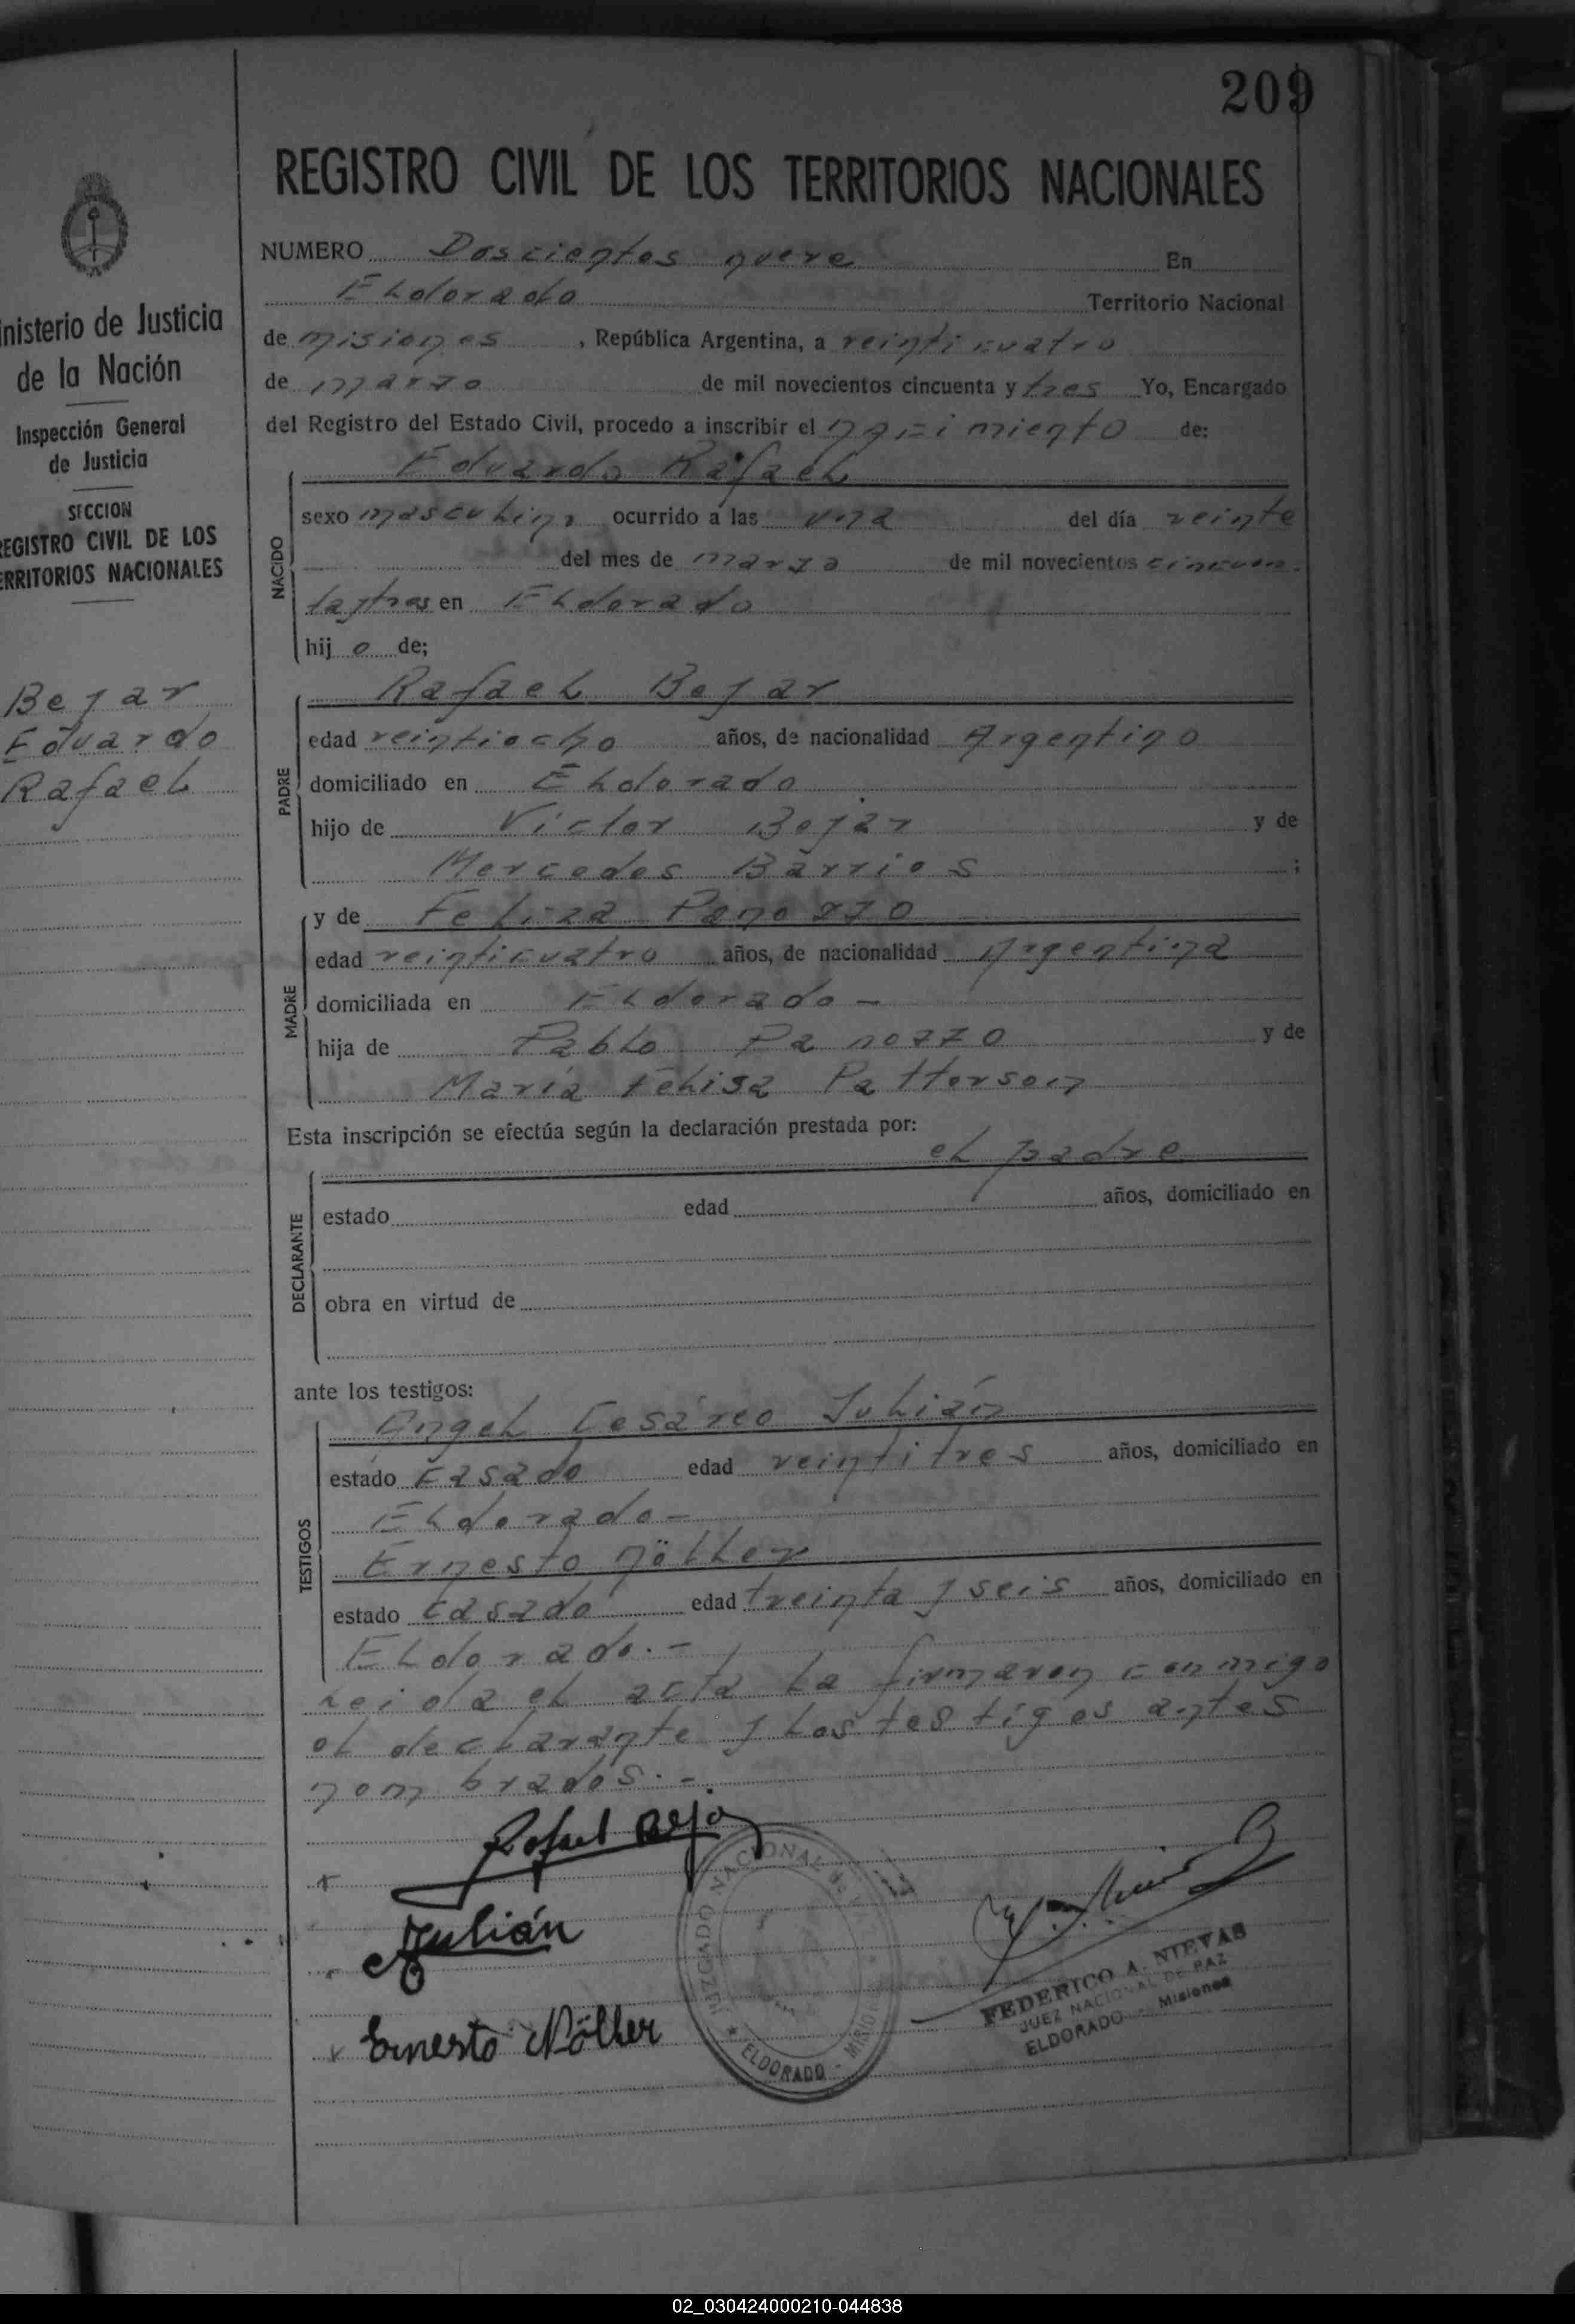 209
REGISTRO CIVIL DE LOS TERRITORIOS NACIONALES
inisterio de Justicia
de la Nación
Inspección General
de Justicia
SECCION
REGISTRO CIVIL DE LOS
ERRITORIOS NACIONALES
Bejar
Eduardo
Rafael
NUMERO Doscientos nueve En
Eldorado Territorio Nacional
de misiones, República Argentina, a veinticuatro
de marzo de mil novecientos cincuenta y tres Yo, Encargado
del Registro del Estado Civil, procedo a inscribir el nacimiento de:
NACIDO
Eduardo Rafael
sexo masculino ocurrido a las una del día veinte
del mes de marzo de mil novecientos cincuen-
taytres en Eldorado
hijo de;
PADRE
Rafael Bejar
edad veintiocho años, de nacionalidad Argentino
domiciliado en Eldorado
hijo de Victor Bejar y de
Mercedes Barrios ;
MADRE
y de Feliza Panozzo
edad veinticuatro años, de nacionalidad Argentina
domiciliada en Eldorado -
hija de Pablo Panozzo y de
María Felisa Patterson
Esta inscripción se efectúa según la declaración prestada por:
DECLARANTE
el padre
estado edad años, domiciliado en
obra en virtud de
ante los testigos:
TESTIGOS
Angel Cesáreo Julián
estado Casado edad veintitres años, domiciliado en
Eldorado -
Ernesto Nöller
estado Casado edad treinta y seis años, domiciliado en
Eldorado. -
Leida el acta la firmaron conmigo
el declarante y los testigos antes
nombrados. -.
Rafael Bejar
Julián
Ernesto Nöller
JUZGADO NACIONAL DE PAZ
ELDORADO - MISIONES
FEDERICO A. NIEVAS
JUEZ NACIONAL DE PAZ
ELDORADO - Misiones
02_030424000210-044838